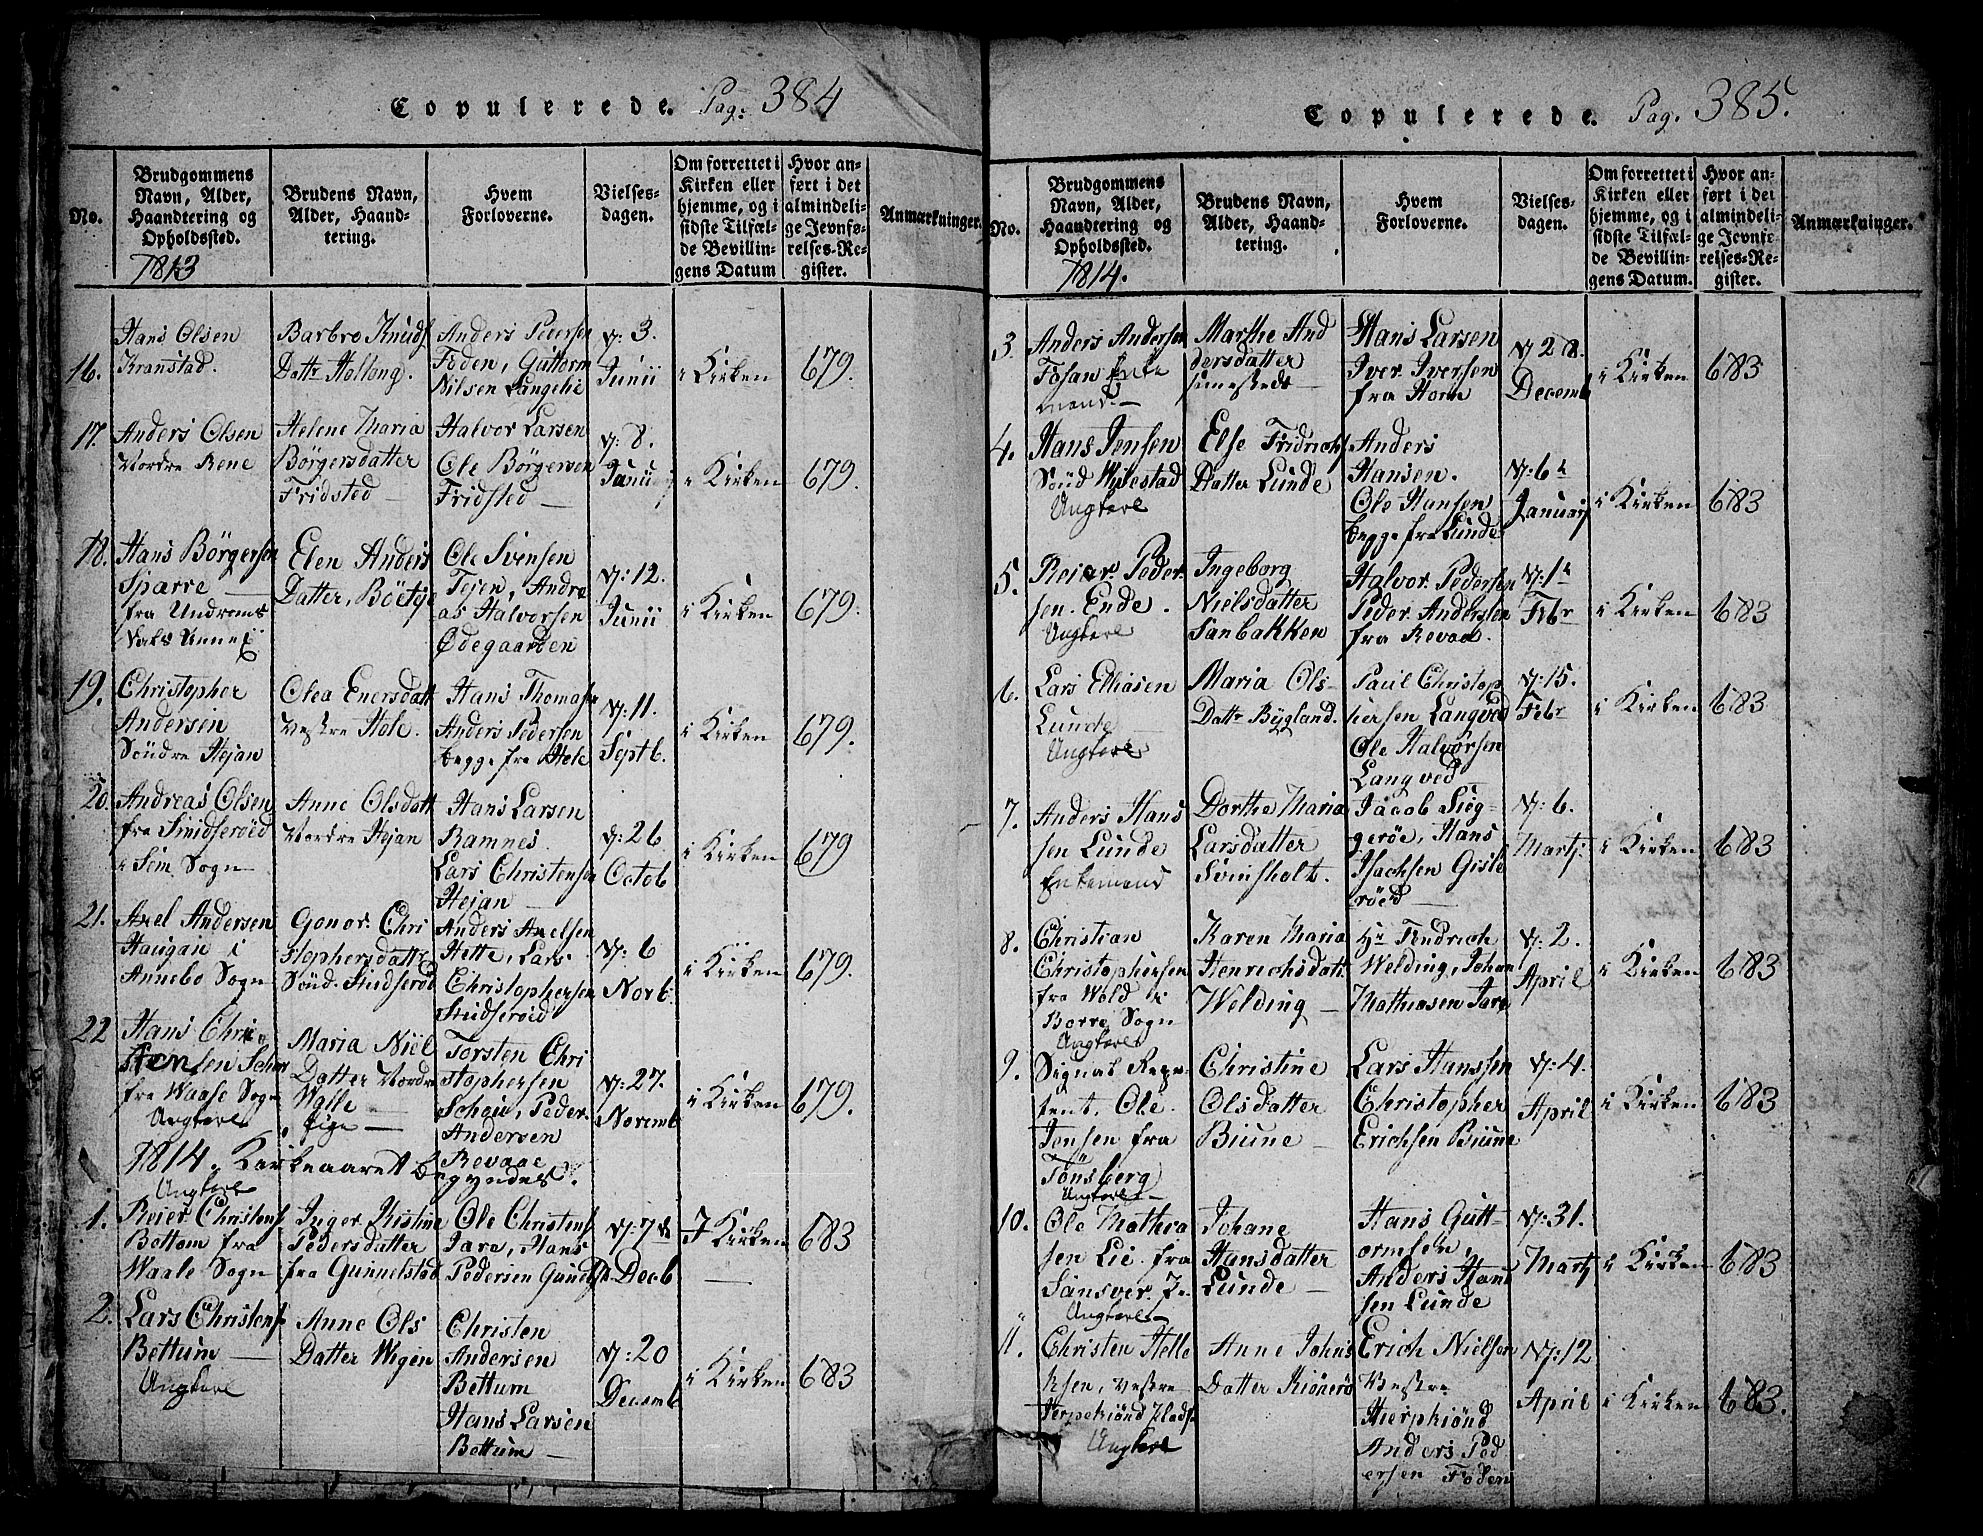 Copulerede. Pag. 384
No.
Brudgommens Navn, Alder, Haandtering og Opholdssted.
Brudens Navn, Alder, Haandtering.
Hvem Forloverne.
Vielsesdagen.
Om forrettet i Kirken eller hjemme, og i sidste Tilfælde Bevillingens Datum
Hvor anført i det almindelige Jevnførelses-Register.
Anmærkninger.
1813
16.
Hans Olsen
Kranstad.
Barbro Knuds
Datr Hollong.
Anders Pedersen
Foden, Guttorm
Nilsen Langelie
D: 3.
Junii
i Kirken
679.
17.
Anders Olsen
Nordre Rene
Helene Maria
Börgersdatter
Fridsted
Halvor Larsen
Ole Börgersen
Fridsted
D: 8.
Junii
i Kirken
679.
18.
Hans Börgersen
Sparre
fra Undrums
Vals Annex
Elen Anders
Datter, Böetye
Ole Svinsen
Tejen, Andre
as Halvorsen
Ødegaarden
D: 12.
Junii
i Kirken
679.
19.
Christopher
Andersen
Söndre Hejan
Olea Enersdatt
Vestre Hole.
Hans Thomasen
Anders Pedersen
begge fra Hole
D: 11.
Septb.
i Kirken
679.
20.
Andreas Olsen
fra Smidseröed
i Sem Sogn
Anne Olsdatt
Nordre Hejan
Hans Larsen
Ramnes.
Lars Christensen
Hejan
D: 26
Octob
i Kirken
679
21.
Axel Andersen
Haugan i
Annebo Sogn
Gonor Chri
stophersdatter
Sönd. Studseröd
Anders Axelsen
Hette, Lars
Christophersen
Studseröed
D: 6
Norb.
i Kirken
679.
22
Hans Chri
stensen Schou
fra Waale Sogn
Ungkarl
Maria Niel
Datter Nordre
Walle
Pige
Torsten Chri
stophersen
Schou, Peder
Andersen
Revaae
D: 27.
Novemb
i Kirken
679.
1814. Kirkeaaret begyndes.
Ungkarl
1.
Reier Christens
Bottom fra
Waale Sogn
Inger Kistine
Pedersdatter
fra Gunnelstad
Ole Christens
Jare, Hans
Pedersen Gunelst
D: 7de
Decb
I Kirken
683
2.
Lars Christens
Bettum
Ungkarl
Anne Ols
Datter Wegen
Christen
Andersen
Bettum
Hans Larsen
Bettum
D: 20
Decemb
i Kirken
683
Copulerede. Pag. 385.
No.
Brudgommens Navn, Alder, Haandtering og Opholdssted.
Brudens Navn, Alder, Haandtering.
Hvem Forloverne.
Vielsesdagen.
Om forrettet i Kirken eller hjemme, og i sidste Tilfælde Bevillingens Datum.
Hvor anført i det almindelige Jevnførelses-Register.
Anmærkninger.
1814.
3
Anders Andersen
Fosan Enke
mand.
Marthe And
dersdatter
simesteds
Hans Larsen
Iver Iversen
fra Horn
D 28.
Decemb
i Kirken
683
4.
Hans Jensen
Sönd Wivestad
Ungkarl
Else Fridrichs
Datter Lunde
Anders
Hansen.
Ole Hansen
begge fra Lunde
D: 6te
Januarj
i Kirken
683
5.
Reier Peder
sen. Ende.
Ungkarl
Ingeborg
Nielsdatter
Sanbakken
Halvor Pedersen
Peder Andersen
fra Revaa.
D: 1te
Febr
i Kirken
683
6.
Lars Elliasen
Lunde
Ungkarl
Maria Ols-
Datr Bÿgland.
Paul Christop
hersen Langved
Ole Halvorsen
Langved
D: 15.
Febr
i Kirken
683
7.
Anders Hans
sen Lunde
Enkemand
Dorthe Maria
Larsdatter
Svinsholt.
Jacob Sug-
geröe, Hans
Isachsen Gisle
röed
D: 6.
Martj.
i Kirken
683
8.
Christian
Christophersen
fra Wold i
Borre Sogn
Ungkarl
Karen Maria
Henrichsdatt
Welding
Hr Fendrich
Welding, Johan
Mathiasen Jare
D: 2.
April
i Kirken
683
9.
Signal Repe-
tent. Ole
Jonsen fra
Tönsberg
Ungkarl
Christine
Olsdatter
Biune
Lars Hanssen
Christopher
Erichsen Biune
D: 4.
April
i Kirken
683
10.
Ole Mathia
sen Lie fra
Sansver
Ungkarl
Johane
Hansdatter
Lunde
Hans Gutt-
ormsen,
Anders Han
sen Lunde
D: 31.
Martj
i Kirken
683
11.
Christen Helle
ksen, Vestre
Herpekiönd Plads
Ungkarl
Anne Johns
Datter Kiönerö
Erich Nielsen
Vestre
Hierpkiönd
Anders Ped
ersen Foden
D: 12
April
i Kirken
683.